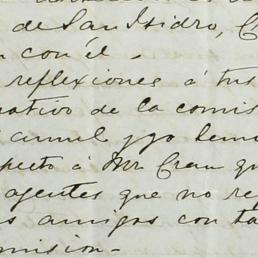 de San Isidro, C
con él.
reflexiones á tus
ativo de la comis
y yo hemo
specto á Mr Crau qu
agentes que no re
s amigos con ta
mision.